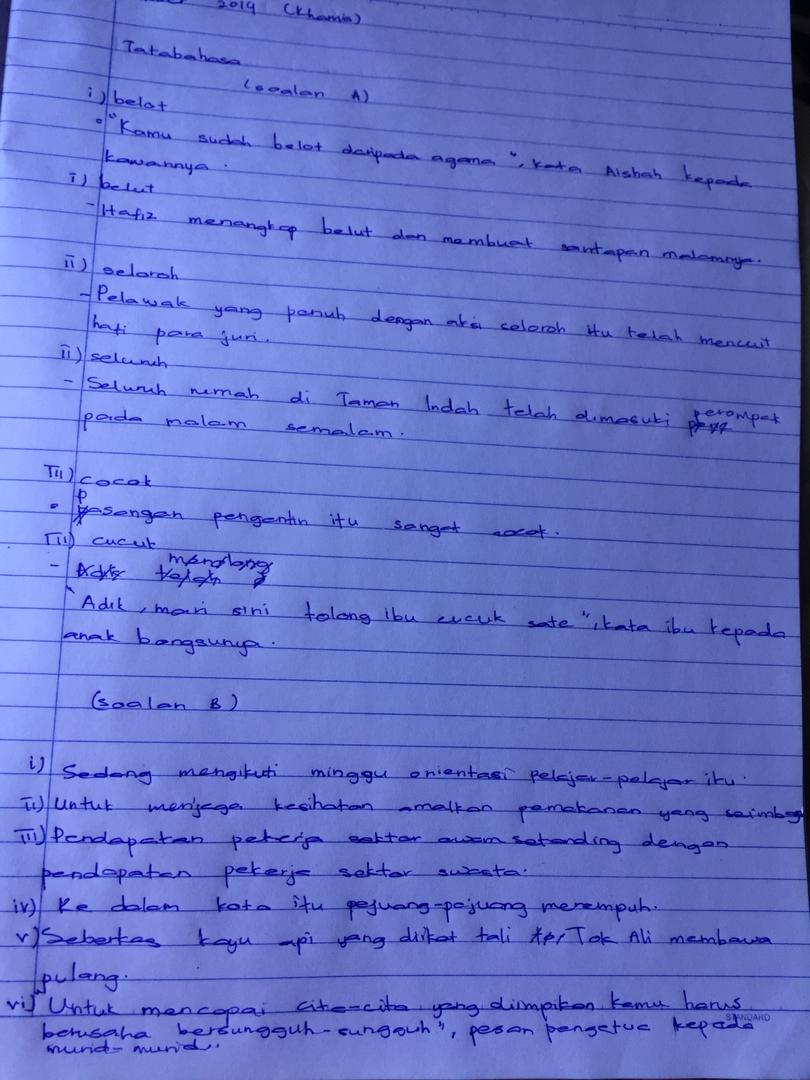 2019 (Khamis)
Tatabahasa
(soalan A)
i) belot
"Kamu sudah belot daripada agama", kata Aishah kepada
kawannya.
i) belut
- Hafiz menangkap belut dan membuat santapan malamnya.
ii) seloroh
- Pelawak yang penuh dengan aksi seloroh itu telah mencuit
hati para juri.
ii) seluruh
- Seluruh rumah di Taman Indah telah dimasuki perompak
pada malam semalam.
iii) cocok
Pasangan pengantin itu sangat cocok.
iii) cucuk
-
"Adik, mari sini tolong ibu cucuk sate", kata ibu kepada
anak bongsunya.
(soalan B)
i) Sedang mengikuti minggu orientasi pelajar-pelajar itu.
ii) Untuk menjaga kesihatan amalkan pemakanan yang seimbang
iii) Pendapatan pekerja sektor awam setanding dengan
pendapatan pekerja sektor swasta.
iv) Ke dalam kota itu pejuang-pejuang merempuh.
v) Seberkas kayu api yang diikat tali Tok Ali membawa
pulang.
vi) Untuk mencapai cita-cita yang diimpikan kamu harus
berusaha bersungguh-sungguh", pesan pengetua kepada
murid-murid.
STANDARD